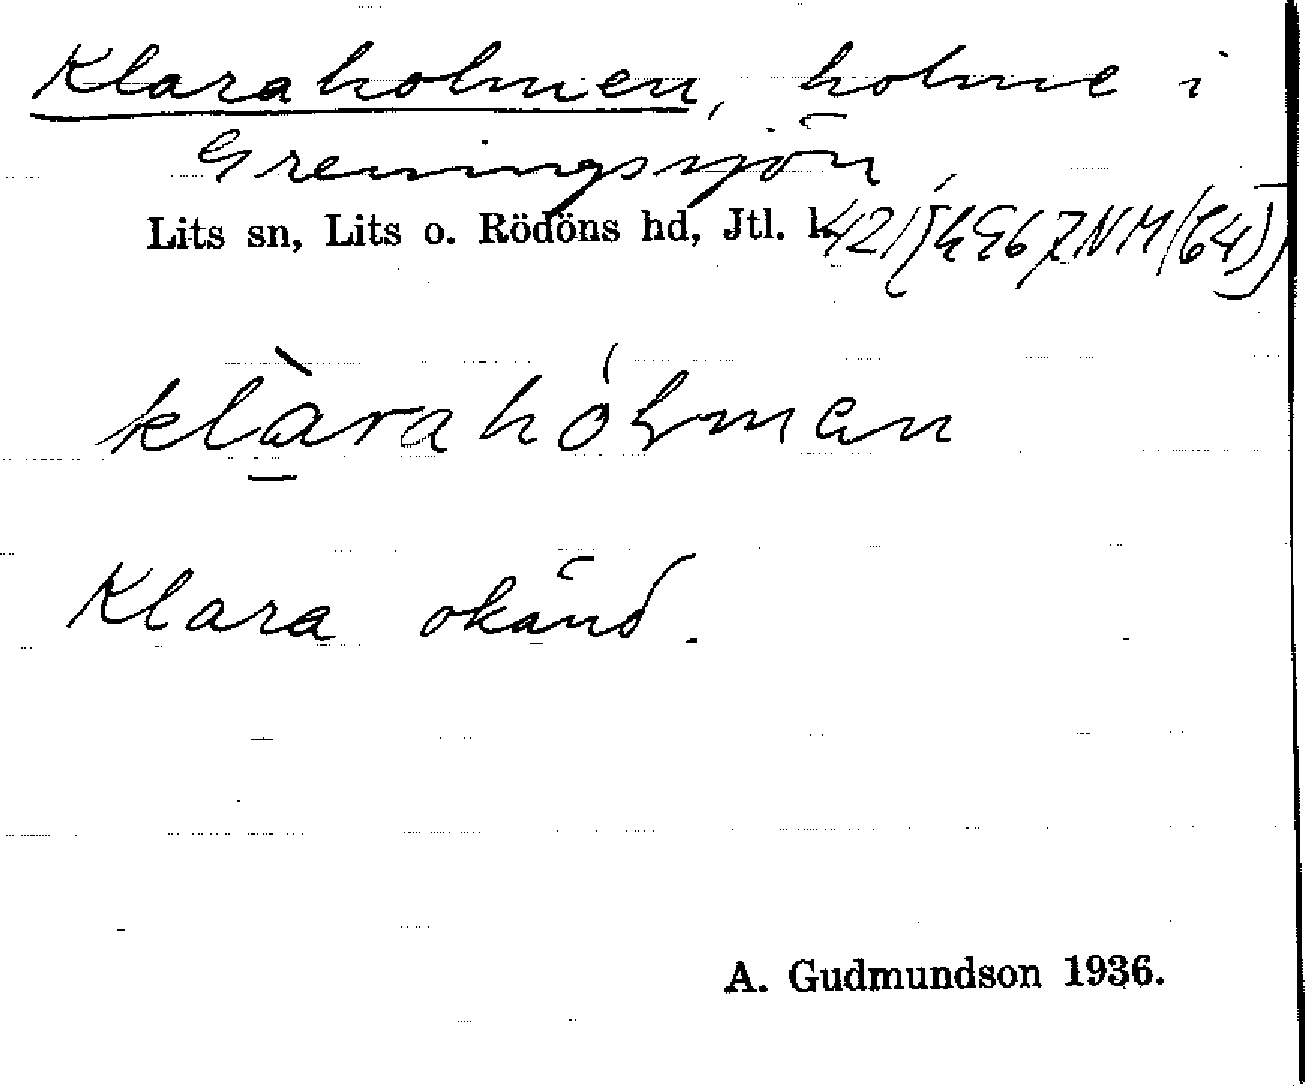 Klaraholmen, holme i
Greningsjön
Lits sn, Lits o. Rödöns hd, Jtl.
klàrahólman
Klara okänd.
A. Gudmundson 1936.